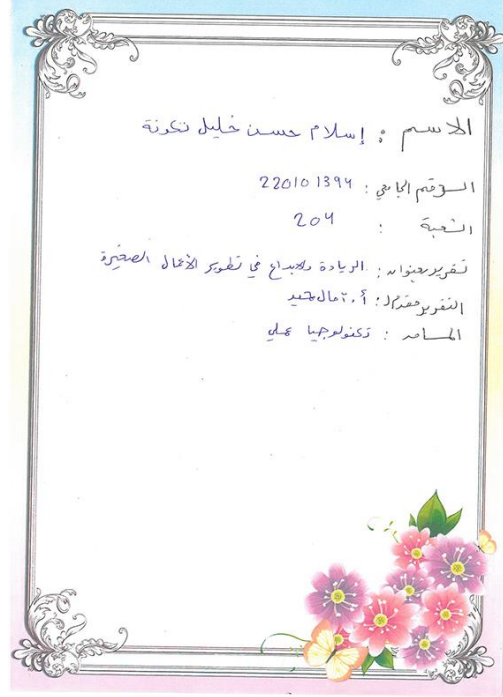 الاسم : إسلام حسن خليل تكونة
الرقم الجامعي : 220101394
الشعبة : 204
تقرير بعنوان : الريادة والابداع في تطوير الأعمال الصغيرة
التقرير مقدم ل : أ. آمال
المساق : تكنولوجيا عملي